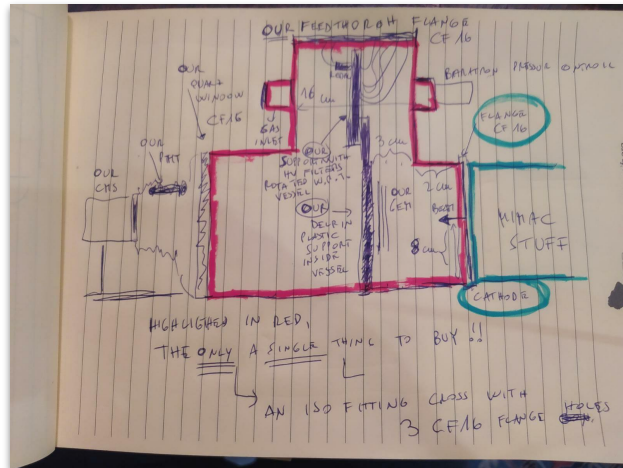 OUR FEEDTHOROH FLANGE
CF 16
OUR
QUARZ
WINDOW
CF16
16 cm
BARATRON PRESSUR CONTROLL
GAS
INLET
FLANGE
CF 16
OUR
PMT
OUR
CMS
3 cm
OUR
SUPPORT WITH
HV FILTERS
ROTATED W.R.T.
VESSEL
OUR
DELRIN
PLASTIC
SUPPORT
INSIDE
VESSEL
OUR
GEM
2 cm
8 cm
MIMAC
STUFF
CATHODE
HIGHLIGHED IN RED,
THE ONLY A SINGLE THING TO BUY !!
AN ISO FITTING CROSS WITH
3 CF16 FLANGE HOLES